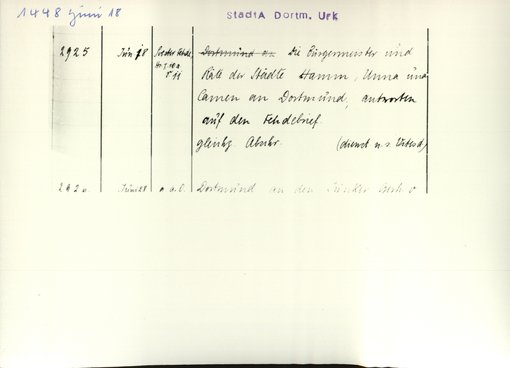 1448 Juni 18
StadtA Dortm. Urk
2925 Juni 18 Dortmund an Die Bürgermeister und
Räte der Städte Hamm, Unna und
Camen an Dortmund, antworten
auf den Fehdebrief
gleichz. Abschr.
Juni 28 Dortmund an den Junker